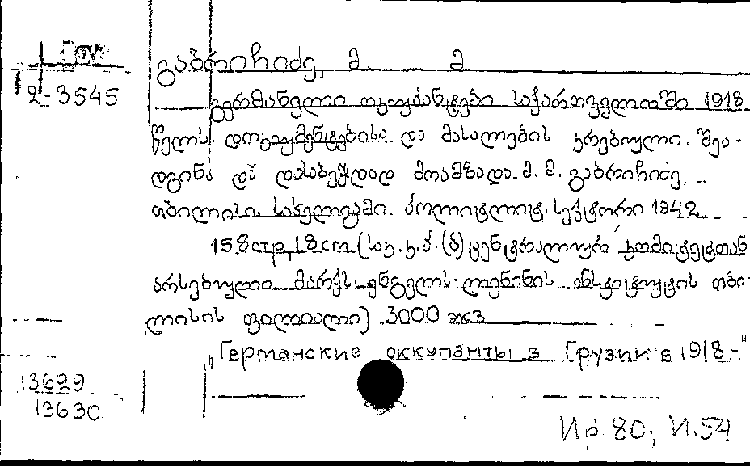 გაბრიჩიძე, მ. მ
2-3545
გერმანელი ოკუპანტები საქართველოში 1918
წელს დოკუმენტებისა და მასალების კრებული. შეა-
დგინა და დასაბეჭდად მოამზადა მ. მ. გაბრიჩიძე
თბილისი სახელგამი. პოლიტლიტ. სექტორი 1942
158 стр. 18 cm (საკ. კ. პ. (ბ) ცენტრალური კომიტეტთან
არსებული მარქს-ენგელს-ლენინის ინსტიტუტის თბი-
ლისის ფილიალი) 3000 экз
„Германские оккупанты в Грузии в 1918 г"
13629
13630
Ир 80, И.54